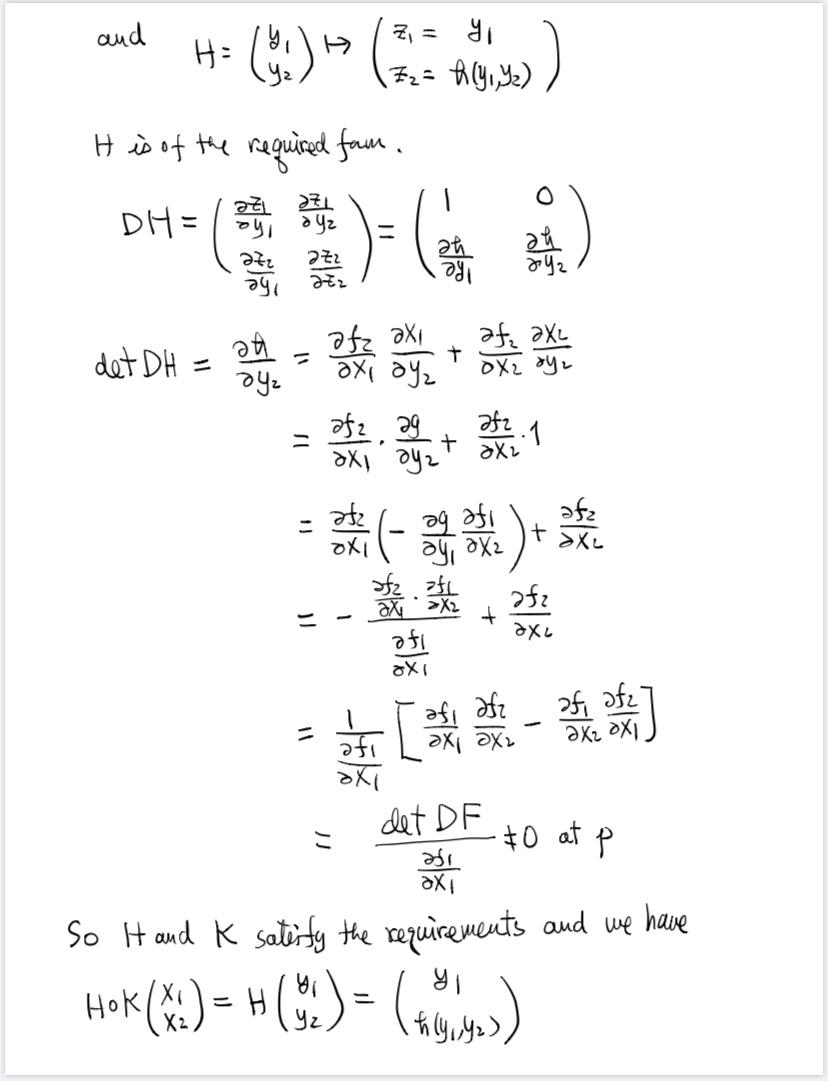 and H = \begin{pmatrix} y_1 \\ y_2 \end{pmatrix} \mapsto \begin{pmatrix} z_1 = y_1 \\ z_2 = h(y_1, y_2) \end{pmatrix}
H is of the required form.
DH = \begin{pmatrix} \frac{\partial z_1}{\partial y_1} & \frac{\partial z_1}{\partial y_2} \\ \frac{\partial z_2}{\partial y_1} & \frac{\partial z_2}{\partial z_2} \end{pmatrix} = \begin{pmatrix} 1 & 0 \\ \frac{\partial h}{\partial y_1} & \frac{\partial h}{\partial y_2} \end{pmatrix}
det DH = \frac{\partial h}{\partial y_2} = \frac{\partial f_2}{\partial x_1} \frac{\partial x_1}{\partial y_2} + \frac{\partial f_2}{\partial x_2} \frac{\partial x_2}{\partial y_2}
= \frac{\partial f_2}{\partial x_1} \cdot \frac{\partial g}{\partial y_2} + \frac{\partial f_2}{\partial x_2} \cdot 1
= \frac{\partial f_2}{\partial x_1} \left( - \frac{\partial g}{\partial y_1} \frac{\partial f_1}{\partial x_2} \right) + \frac{\partial f_2}{\partial x_2}
= - \frac{\frac{\partial f_2}{\partial x_1} \cdot \frac{\partial f_1}{\partial x_2}}{\frac{\partial f_1}{\partial x_1}} + \frac{\partial f_2}{\partial x_2}
= \frac{1}{\frac{\partial f_1}{\partial x_1}} \left[ \frac{\partial f_1}{\partial x_1} \frac{\partial f_2}{\partial x_2} - \frac{\partial f_1}{\partial x_2} \frac{\partial f_2}{\partial x_1} \right]
= \frac{det DF}{\frac{\partial f_1}{\partial x_1}} \neq 0 at p
So H and K satisfy the requirements and we have
H \circ K \begin{pmatrix} x_1 \\ x_2 \end{pmatrix} = H \begin{pmatrix} y_1 \\ y_2 \end{pmatrix} = \begin{pmatrix} y_1 \\ h(y_1, y_2) \end{pmatrix}